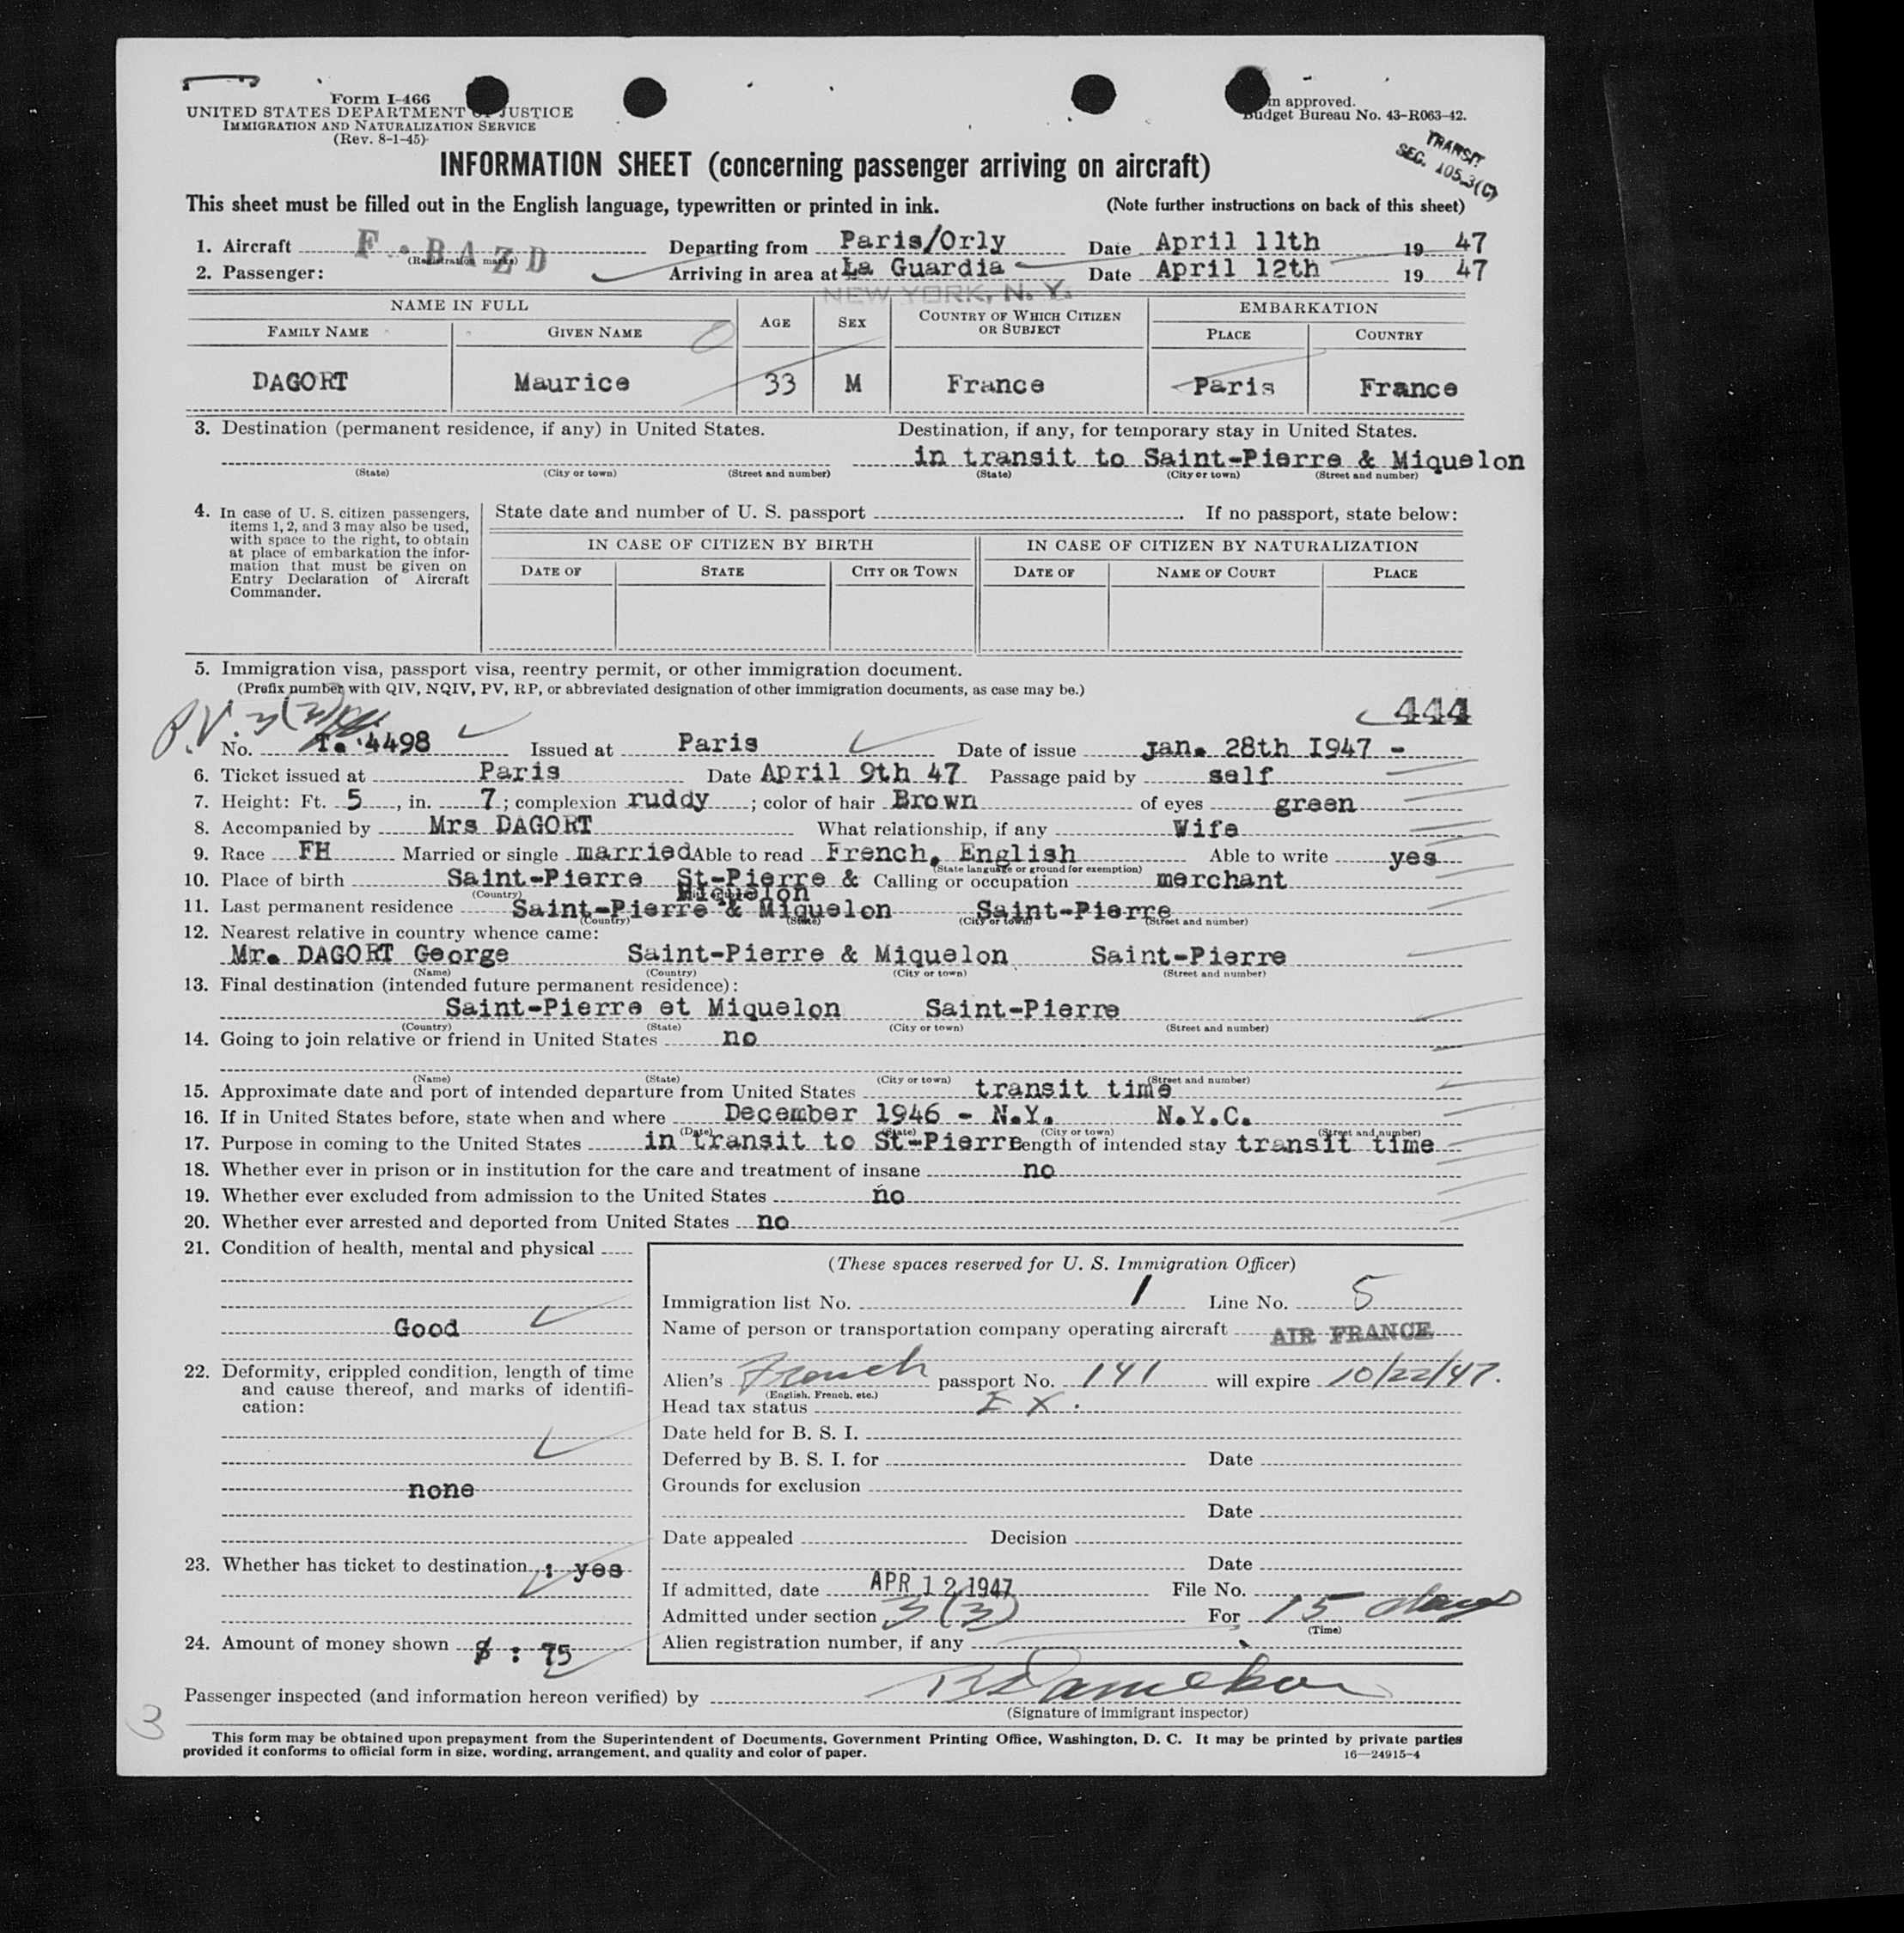 Form I-466
UNITED STATES DEPARTMENT OF JUSTICE
IMMIGRATION AND NATURALIZATION SERVICE
(Rev. 8-1-45)
m approved.
Budget Bureau No. 43-R063-42.
TRANSIT
SEC. 105.3(C)
INFORMATION SHEET (concerning passenger arriving on aircraft)
This sheet must be filled out in the English language, typewritten or printed in ink. (Note further instructions on back of this sheet)
1. Aircraft F.BAZD Departing from Paris/Orly Date April 11th 19 47
(Registration marks)
2. Passenger: Arriving in area at La Guardia Date April 12th 19 47
NEW YORK, N. Y.
NAME IN FULL AGE SEX COUNTRY OF WHICH CITIZEN OR SUBJECT EMBARKATION
FAMILY NAME GIVEN NAME PLACE COUNTRY
DAGORT Maurice 33 M France Paris France
3. Destination (permanent residence, if any) in United States. Destination, if any, for temporary stay in United States.
in transit to Saint-Pierre & Miquelon
(State) (City or town) (Street and number) (State) (City or town) (Street and number)
4. In case of U. S. citizen passengers,
items 1, 2, and 3 may also be used,
with space to the right, to obtain
at place of embarkation the infor-
mation that must be given on
Entry Declaration of Aircraft
Commander.
State date and number of U. S. passport . If no passport, state below:
IN CASE OF CITIZEN BY BIRTH IN CASE OF CITIZEN BY NATURALIZATION
DATE OF STATE CITY OR TOWN DATE OF NAME OF COURT PLACE
5. Immigration visa, passport visa, reentry permit, or other immigration document.
(Prefix number with QIV, NQIV, PV, RP, or abbreviated designation of other immigration documents, as case may be.)
P.V. 3(3) 444
No. T. 4498 Issued at Paris Date of issue Jan. 28th 1947 -
6. Ticket issued at Paris Date April 9th 47 Passage paid by self
7. Height: Ft. 5, in. 7; complexion ruddy; color of hair Brown of eyes green
8. Accompanied by Mrs DAGORT What relationship, if any Wife
9. Race FH Married or single married Able to read French, English Able to write yes
(State language or ground for exemption)
10. Place of birth Saint-Pierre St-Pierre & Miquelon Calling or occupation merchant
(Country)
11. Last permanent residence Saint-Pierre & Miquelon Saint-Pierre
(Country) (State) (City or town) (Street and number)
12. Nearest relative in country whence came:
Mr. DAGORT George Saint-Pierre & Miquelon Saint-Pierre
(Name) (Country) (City or town) (Street and number)
13. Final destination (intended future permanent residence):
Saint-Pierre et Miquelon Saint-Pierre
(Country) (State) (City or town) (Street and number)
14. Going to join relative or friend in United States no
(Name) (State) (City or town) (Street and number)
15. Approximate date and port of intended departure from United States transit time
16. If in United States before, state when and where December 1946 - N.Y. N.Y.C.
(Date) (State) (City or town) (Street and number)
17. Purpose in coming to the United States in transit to St-Pierre Length of intended stay transit time
18. Whether ever in prison or in institution for the care and treatment of insane no
19. Whether ever excluded from admission to the United States no
20. Whether ever arrested and deported from United States no
21. Condition of health, mental and physical
Good
22. Deformity, crippled condition, length of time
and cause thereof, and marks of identifi-
cation:
none
23. Whether has ticket to destination : yes
24. Amount of money shown $ : 75
(These spaces reserved for U. S. Immigration Officer)
Immigration list No. 1 Line No. 5
Name of person or transportation company operating aircraft AIR FRANCE
Alien's French passport No. 141 will expire 10/22/47.
(English, French, etc.)
Head tax status EX.
Date held for B. S. I.
Deferred by B. S. I. for Date
Grounds for exclusion
Date
Date appealed Decision
Date
If admitted, date APR 12 1947 File No.
Admitted under section 3(3) For 15 days
(Time)
Alien registration number, if any
Passenger inspected (and information hereon verified) by
(Signature of immigrant inspector)
3
This form may be obtained upon prepayment from the Superintendent of Documents, Government Printing Office, Washington, D. C. It may be printed by private parties
provided it conforms to official form in size, wording, arrangement, and quality and color of paper. 16—24915-4